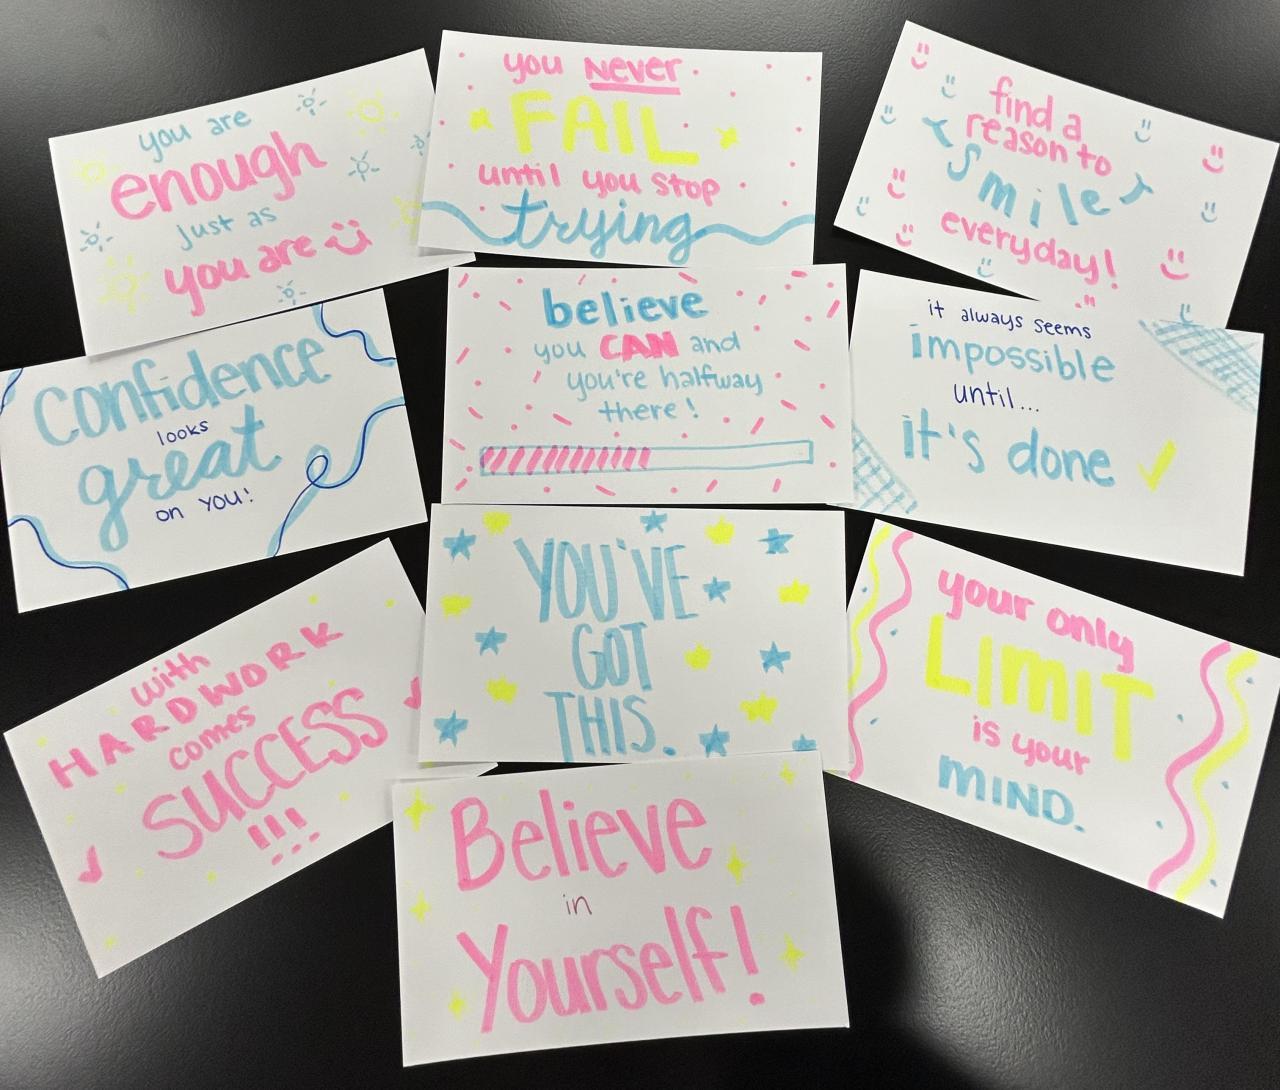 you are
enough
just as
you are
you never
FAIL
until you stop
trying
find a
reason to
smile
everyday!
Confidence
looks
great
on you!
believe
you CAN and
you're halfway
there!
it always seems
impossible
until...
it's done
with
HARDWORK
comes
SUCCESS
!!!
YOU'VE
GOT
THIS.
your only
LIMIT
is your
MIND.
Believe
in
Yourself!